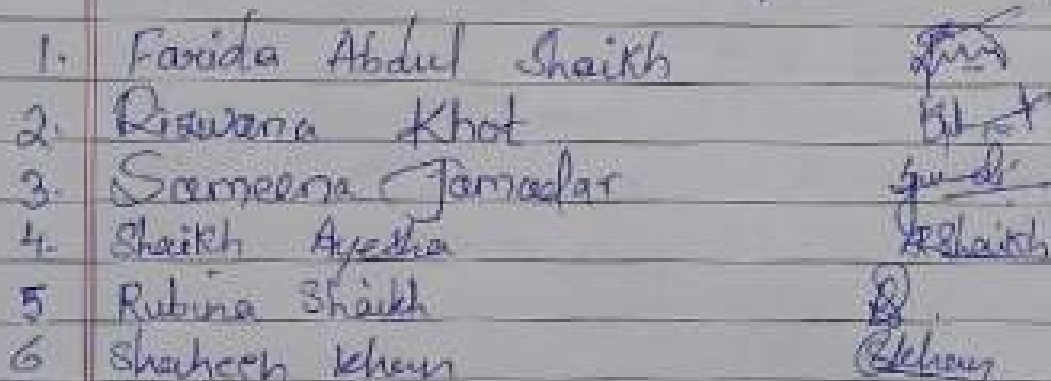 1. Farida Abdul Shaikh
2. Rizwana Khot
3. Sameena Jamadar
4. Shaikh Ayesha AShaikh
5 Rubina Shaikh
6 Shaheen Khan SKhan